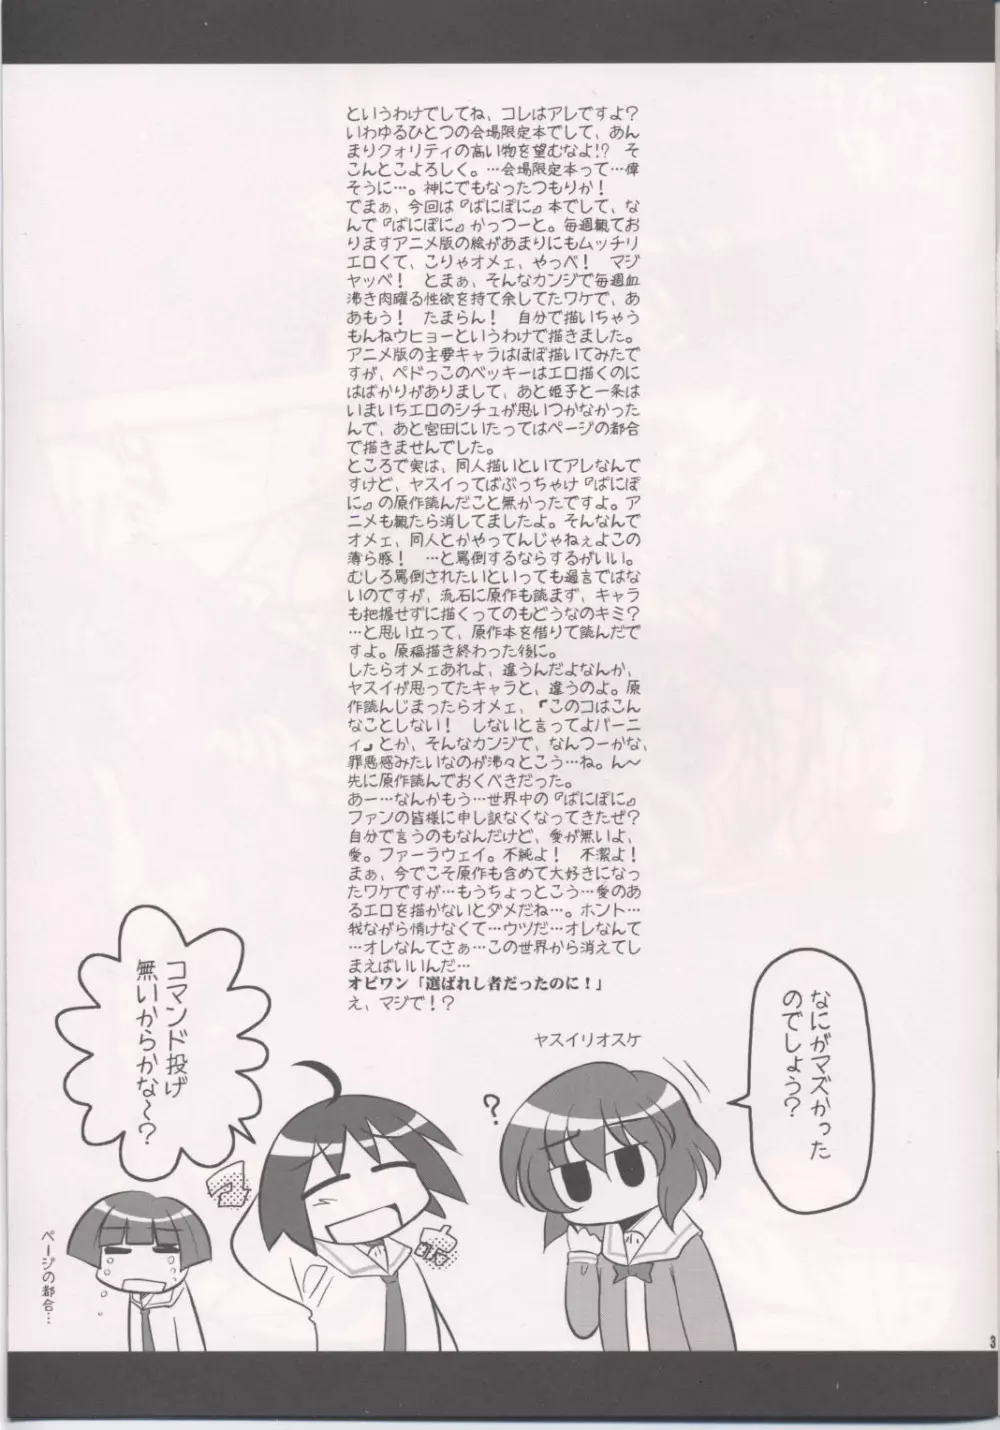 というわけでしてね、コレはアレですよ?
いわゆるひとつの会場限定本でして、あん
まりクォリティの高い物を望むなよ!? そ
こんとこよろしく。…会場限定本って…偉
そうに…。神にでもなったつもりか!
でまぁ、今回は『ぱにぽに』本でして、な
んで『ぱにぽに』かっつーと。毎週観てお
りますアニメ版の絵があまりにもムッチリ
エロくて、こりゃオメェ、やっべ! マジ
ヤッベ! とまぁ、そんなカンジで毎週血
沸き肉躍る性欲を持て余してたワケで、あ
あもう! たまらん! 自分で描いちゃう
もんねウヒョーというわけで描きました。
アニメ版の主要キャラはほぼ描いてみたで
すが、ペドっこのベッキーはエロ描くのに
はばかりがありまして、あと姫子と一条は
いまいちエロのシチュが思いつかなかった
んで、あと宮田にいたってはページの都合
で描きませんでした。
ところで実は、同人描いといてアレなんで
すけど、ヤスイってばぶっちゃけ『ぱにぽ
に』の原作読んだこと無かったですよ。ア
ニメも観たら消してましたよ。そんなんで
オメェ、同人とかやってんじゃねぇよこの
薄ら豚! …と罵倒するならするがいい。
むしろ罵倒されたいといっても過言ではな
いのですが、流石に原作も読まず、キャラ
も把握せずに描くってのもどうなのキミ?
…と思い立って、原作本を借りて読んだで
すよ。原稿描き終わった後に。
したらオメェあれよ、違うんだよなんか、
ヤスイが思ってたキャラと、違うのよ。原
作読んじまったらオメェ、『このコはこん
なことしない! しないと言ってよバーニ
ィ』とか、そんなカンジで、なんつーかな、
罪悪感みたいなのが沸々とこう…ね。ん〜
先に原作読んでおくべきだった。
あー…なんかもう…世界中の『ぱにぽに』
ファンの皆様に申し訳なくなってきたぜ?
自分で言うのもなんだけど、愛が無いよ、
愛。ファーラウェイ。不純よ! 不潔よ!
まぁ、今でこそ原作も含めて大好きになっ
たワケですが…もうちょっとこう…愛のあ
るエロを描かないとダメだね…。ホント…
我ながら情けなくて…ウツだ…オレなんて
…オレなんてさぁ…この世界から消えてし
まえばいいんだ…
オビワン「選ばれし者だったのに!」
え、マジで!?
ヤスイリオスケ
なにがマズかった
のでしょう?
?
コマンド投げ
無いからかな〜?
ページの都合…
3